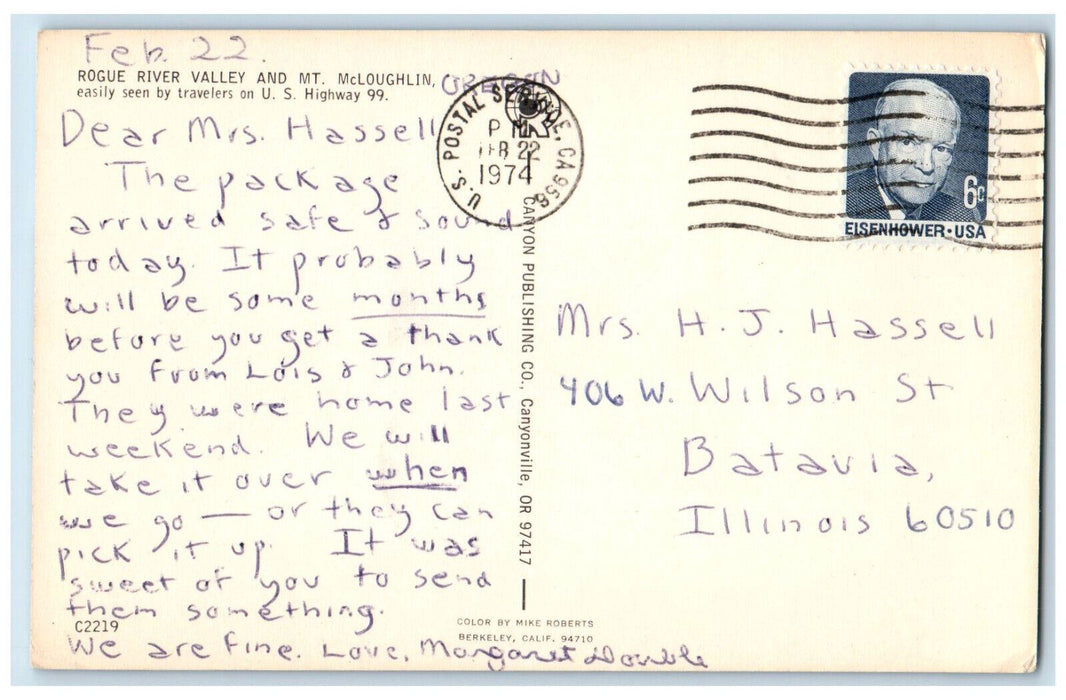 Feb. 22.
ROGUE RIVER VALLEY AND MT. McLOUGHLIN, OREGON
easily seen by travelers on U. S. Highway 99.
Dear Mrs. Hassell
The package
arrived safe & sound
today. It probably
will be some months
before you get a thank
you from Lois & John.
They were home last
weekend. We will
take it over when
we go — or they can
pick it up. It was
sweet of you to send
them something.
C2219
We are fine. Love, Margaret
CANYON PUBLISHING CO., Canyonville, OR 97417
COLOR BY MIKE ROBERTS
BERKELEY, CALIF. 94710
U.S. POSTAL SERVICE, CA956
PM
FEB 22
1974
6c
EISENHOWER·USA
Mrs. H. J. Hassell
406 W. Wilson St
Batavia,
Illinois 60510